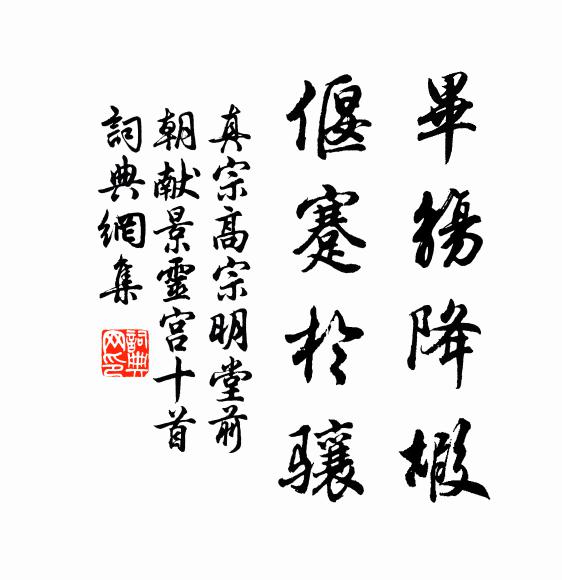 畢觴降嘏
偃蹇於骧
真宗高宗明堂前
朝献景靈宫十首
詞典網集
詞典
网印